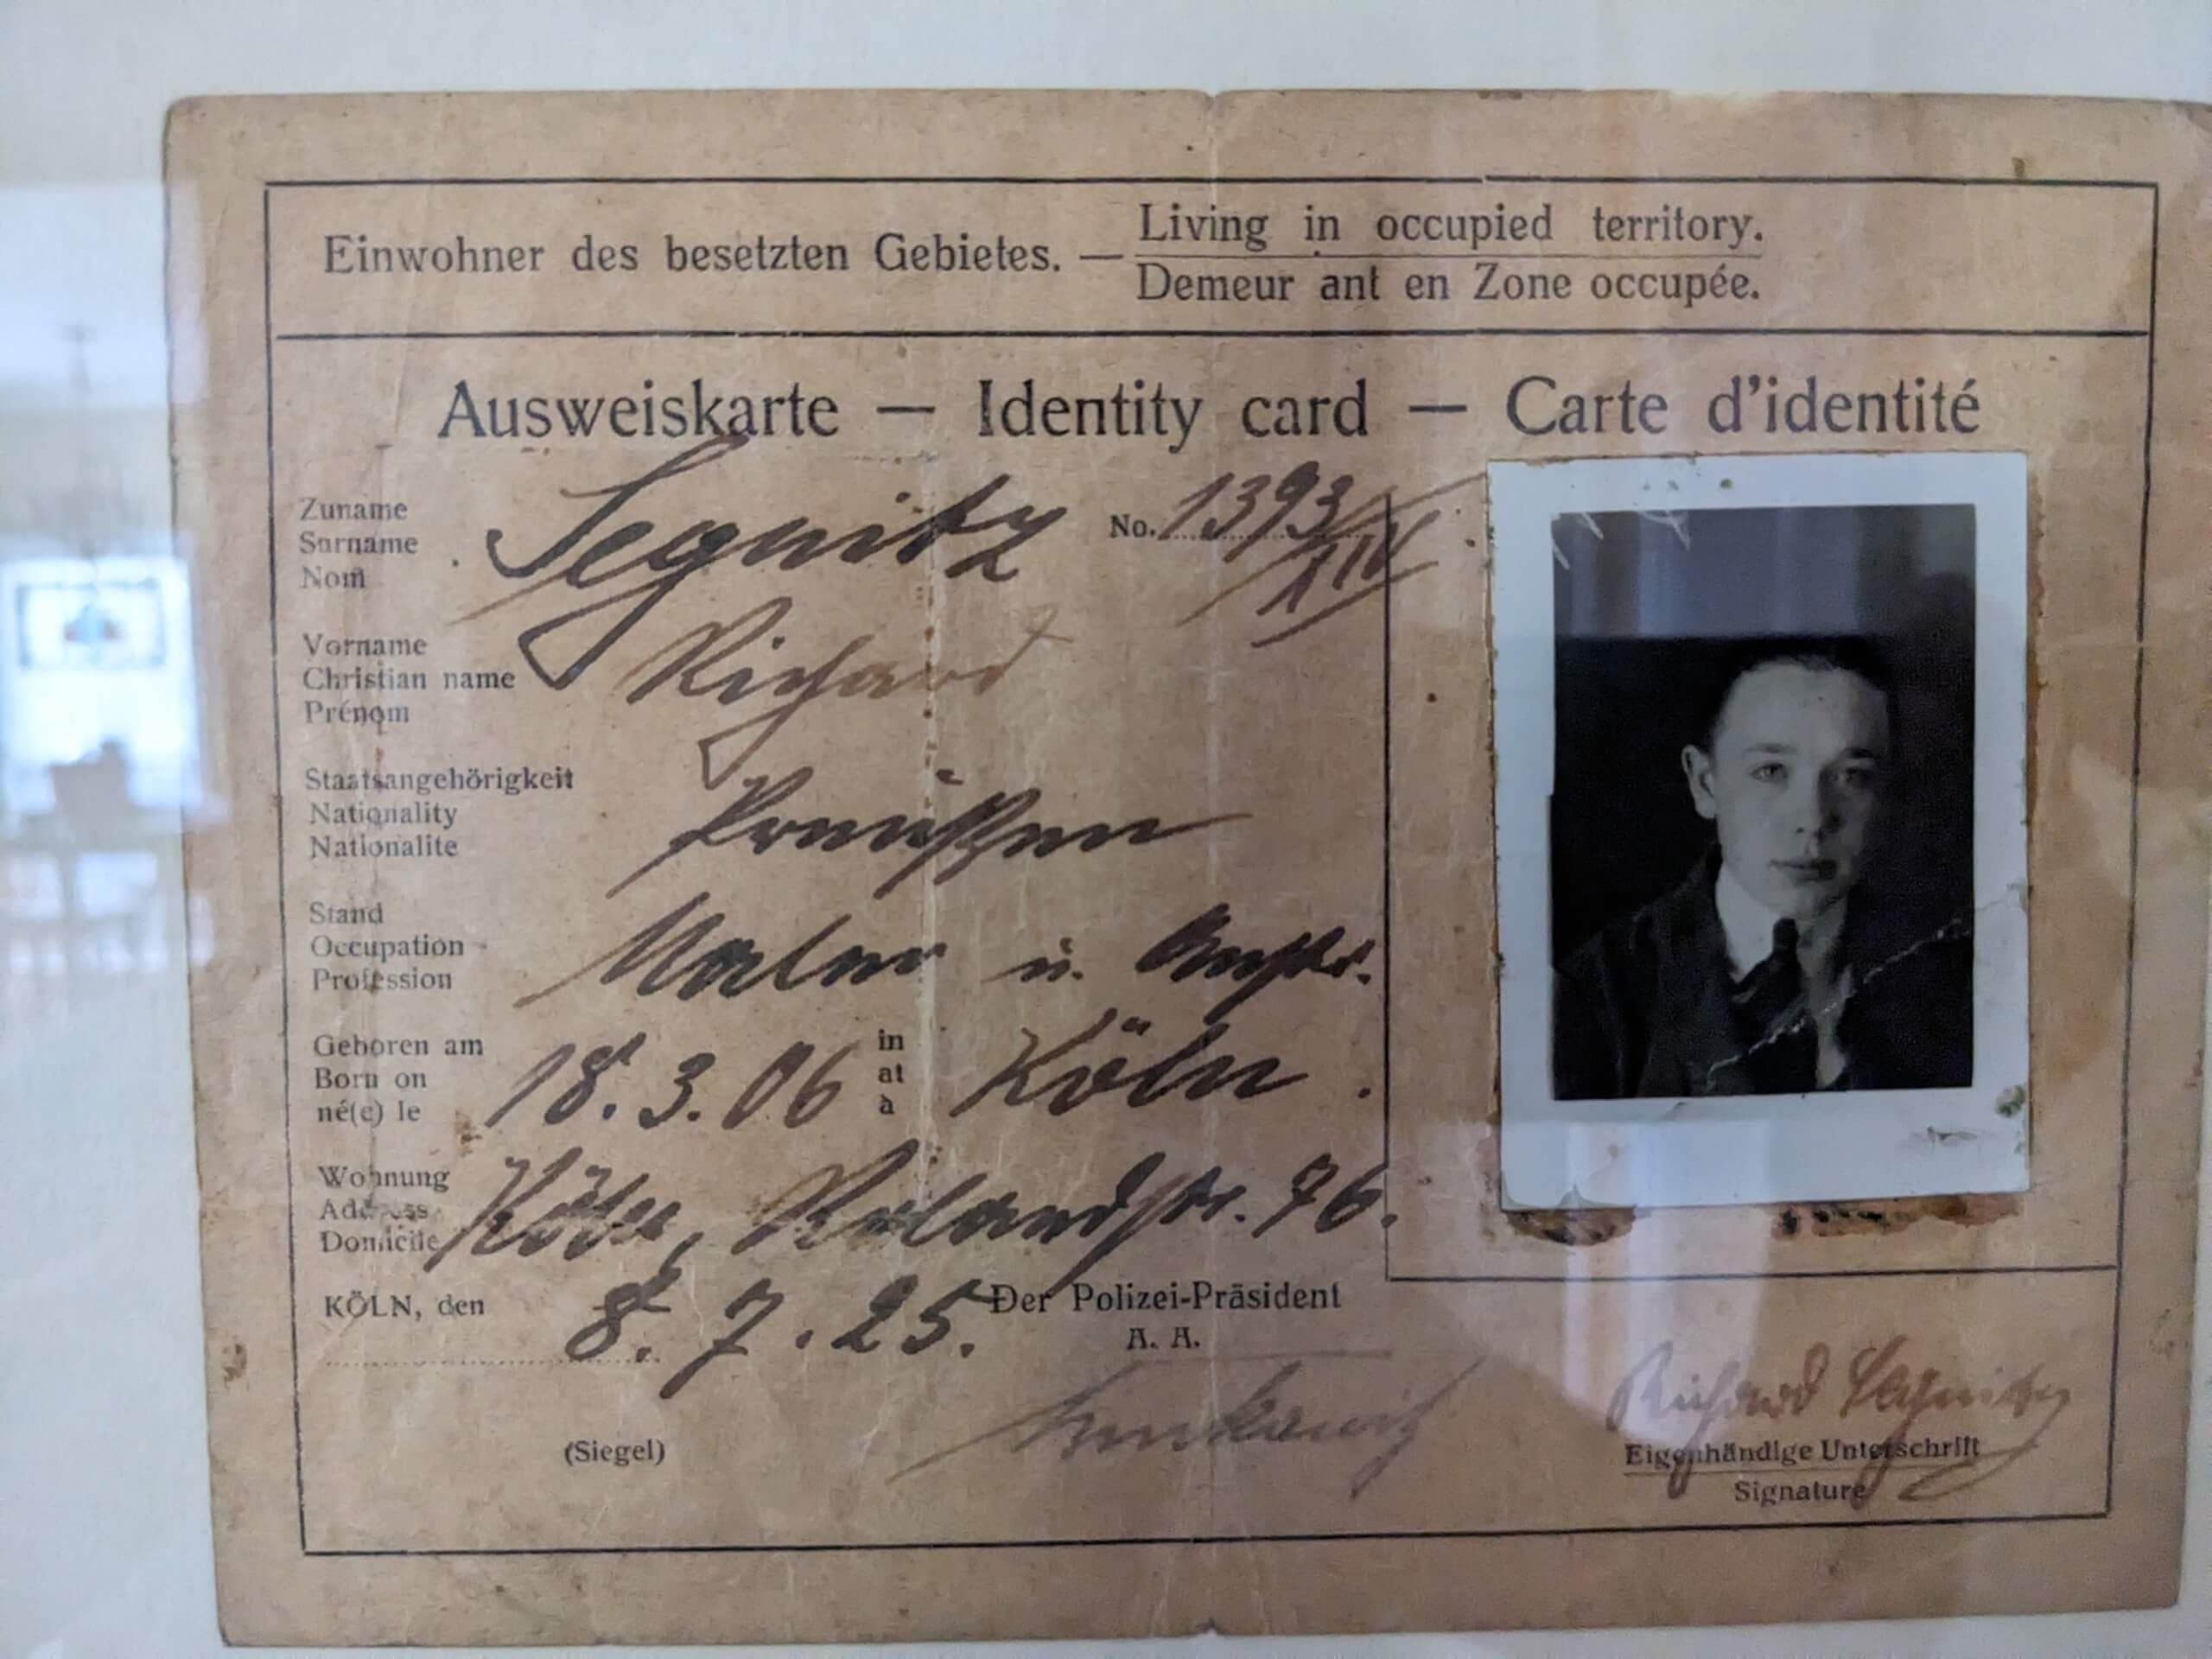 Einwohner des besetzten Gebietes. — Living in occupied territory.
Demeur ant en Zone occupée.
Ausweiskarte — Identity card — Carte d'identité
Zuname
Surname
Nom
Segnitz
No. 1393/XIV
Vorname
Christian name
Prénom
Richard
Staatsangehörigkeit
Nationality
Nationalite
Preußen
Stand
Occupation
Profession
Maler u. Anstr.
Geboren am
Born on
né(e) le
18.3.06
in
at
à
Köln
Wohnung
Address
Domicile
Köln, Rolandstr. 76.
KÖLN, den 8.7.25.
Der Polizei-Präsident
A. A.
(Siegel)
Richard Segnitz
Eigenhändige Unterschrift
Signature